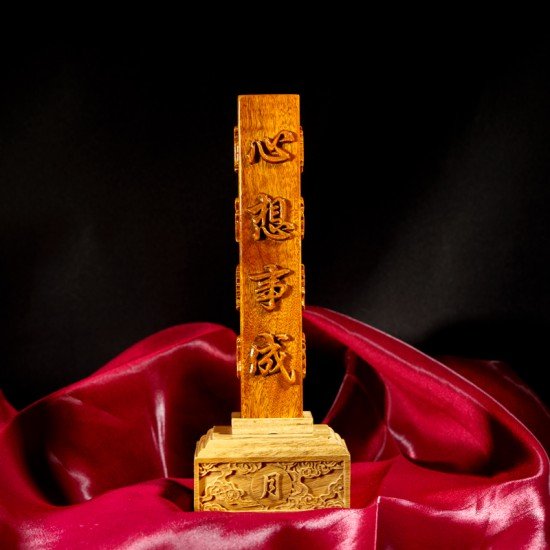 心想事成
月